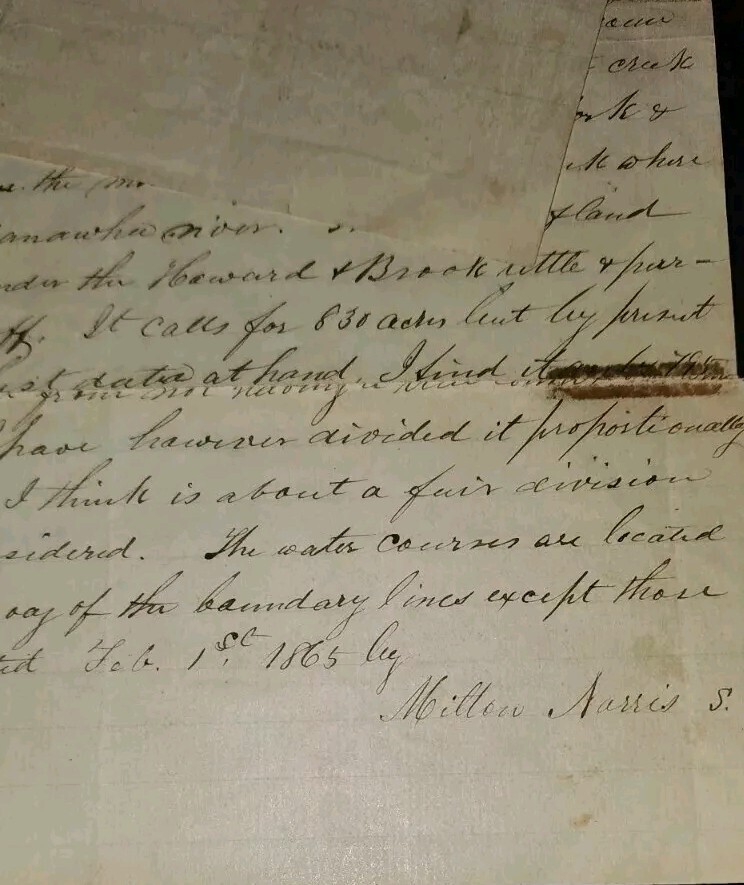 creek
where
& land
the
anawha river.
the Howard & Brook uttle & pur-
It calls for 830 acres but by present
data at hand I find it
from not having
have however divided it proportionally
I think is about a fair division
sidered. The water courses are located
of the boundary lines except those
ted Feb. 1st. 1865 by
Milton Norris S.